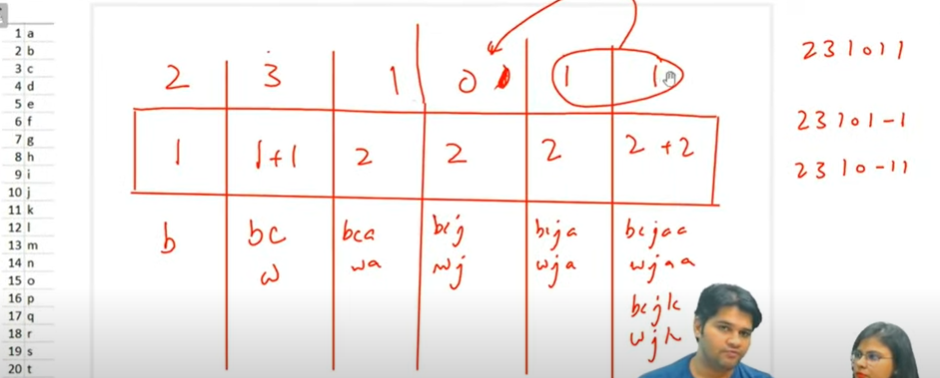 1 a
2 b
3 c
4 d
5 e
6 f
7 g
8 h
9 i
10 j
11 k
12 l
13 m
14 n
15 o
16 p
17 q
18 r
19 s
20 t
2 3 1 0 1 1
1 1+1 2 2 2 2 +2
b bc bca bcj bcja bcjaa
w wa wj wja wjaa
bcjk
wjk
2 3 1 0 1 1
2 3 1 0 1 - 1
2 3 1 0 - 11